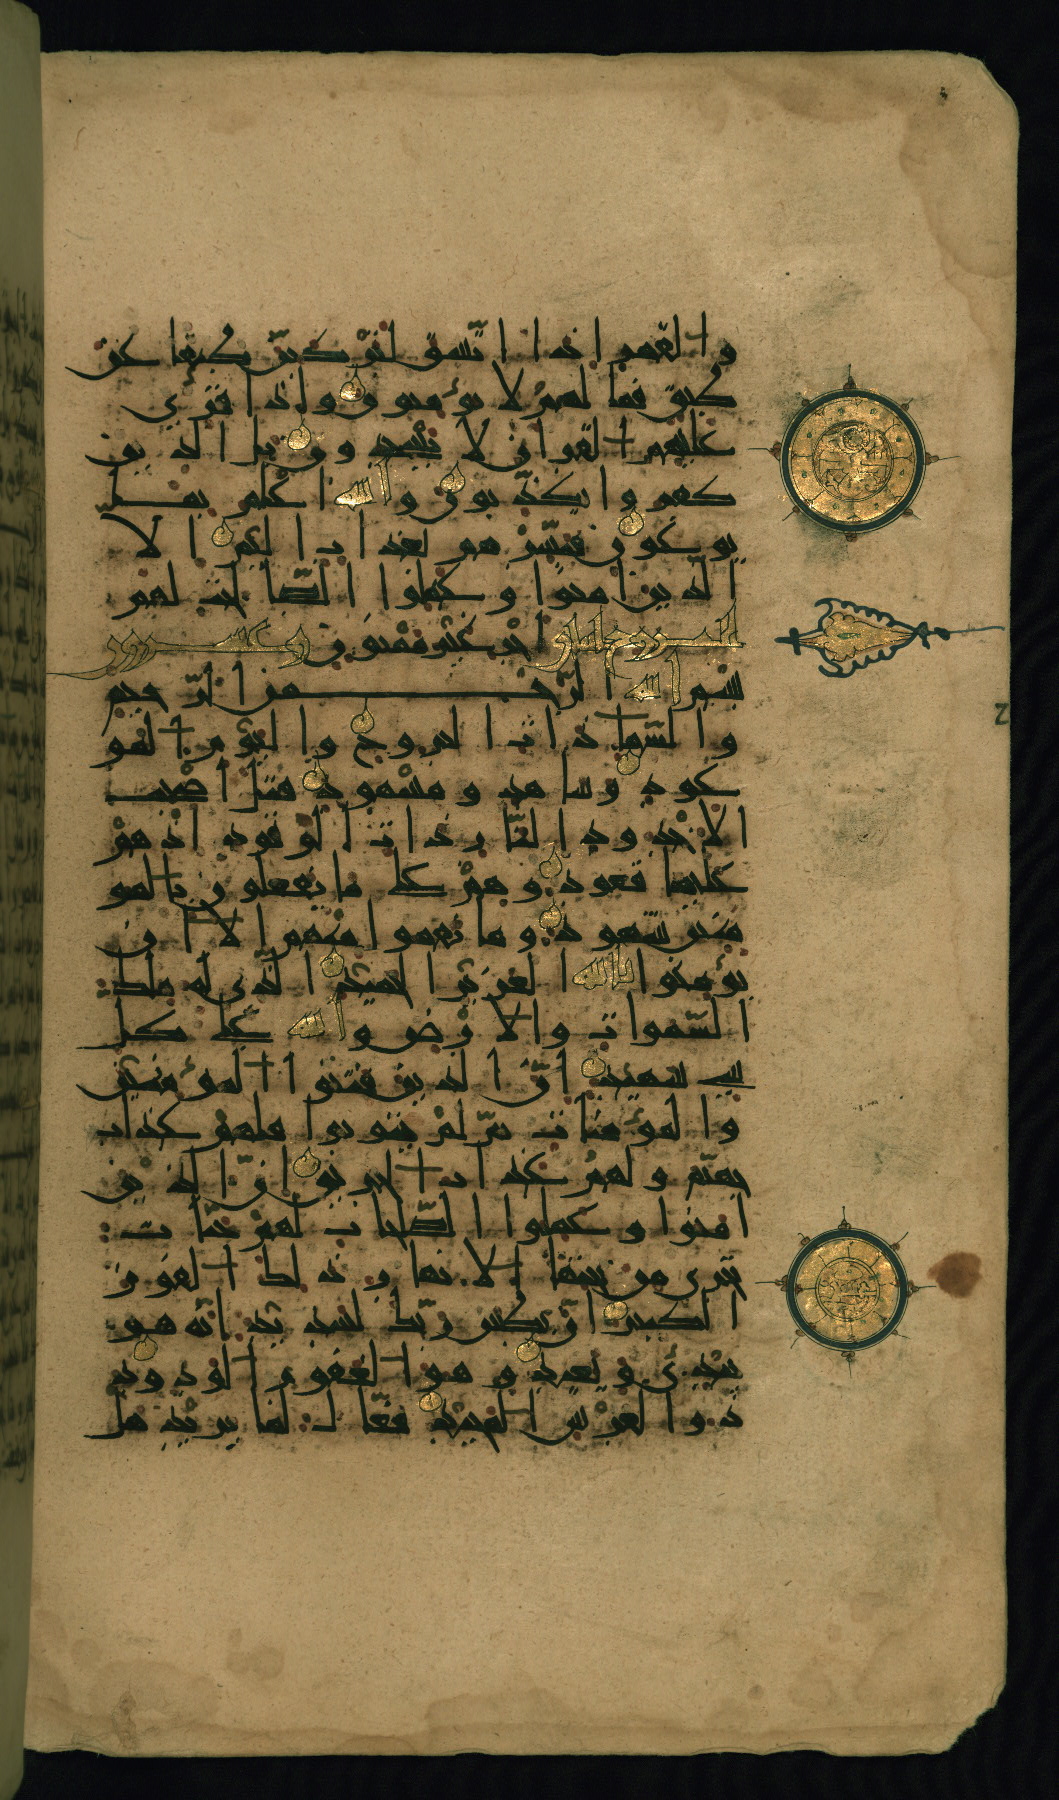 والقمر اذا اتسق لتركبن طبقا عن
طبق فما لهم لا يؤمنون واذا قرى
عليهم القران لا يسجدون بل الذين
كفروا يكذبون والله اعلم بما
يوعون فبشرهم بعذاب اليم الا
الذين امنوا وعملوا الصالحات لهم
اجر غير ممنون
بسم الله الرحمن الرحيم
والسما ذات البروج واليوم المو
عود وشاهد ومشهود قتل اصحب
الاخدود النار ذات الوقود اذ هم
عليها قعود وهم على ما يفعلون بالمو
منين شهود وما نقموا منهم الا ان
يؤمنوا بالله العزيز الحميد الذى له ملك
السموات والارض والله على كل
شى شهيد ان الذين فتنوا المؤمنين
والمؤمنات ثم لم يتوبوا فلهم عذاب
جهنم ولهم عذاب الحريق ان الذين
امنوا وعملوا الصالحات لهم جنات
تجرى من تحتها الانهار ذلك الفوز
الكبير ان بطش ربك لشديد انه هو
يبدى ويعيد وهو الغفور الودود
ذو العرش المجيد فعال لما يريد هل